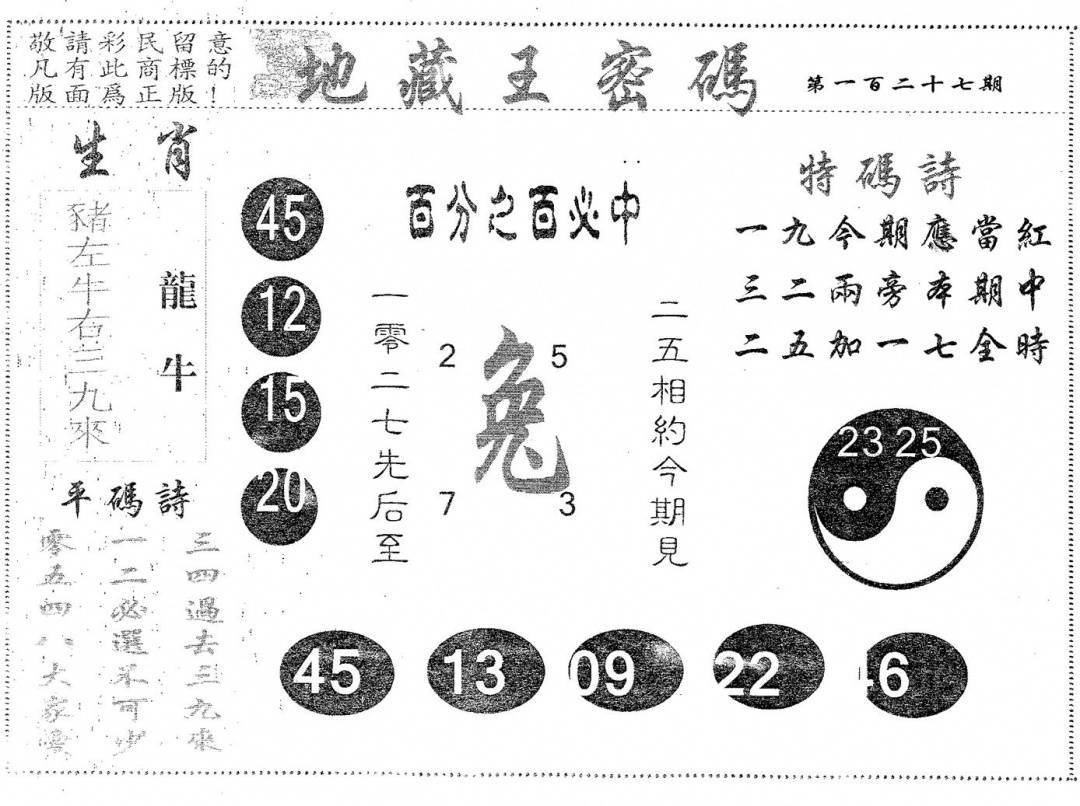 敬請彩民留意
凡有此商標的
版面爲正版!
地藏王密碼
第一百二十七期
生肖
豬左牛右三九來
龍牛
45
12
15
20
百分之百必中
一零二七先后至
2
5
兔
7
3
二五相約今期見
特碼詩
一九今期應當紅
三二兩旁本期中
二五加一七全時
23 25
平碼詩
三四過去三九來
一二必選不可少
零五四八大家
45
13
09
22
46